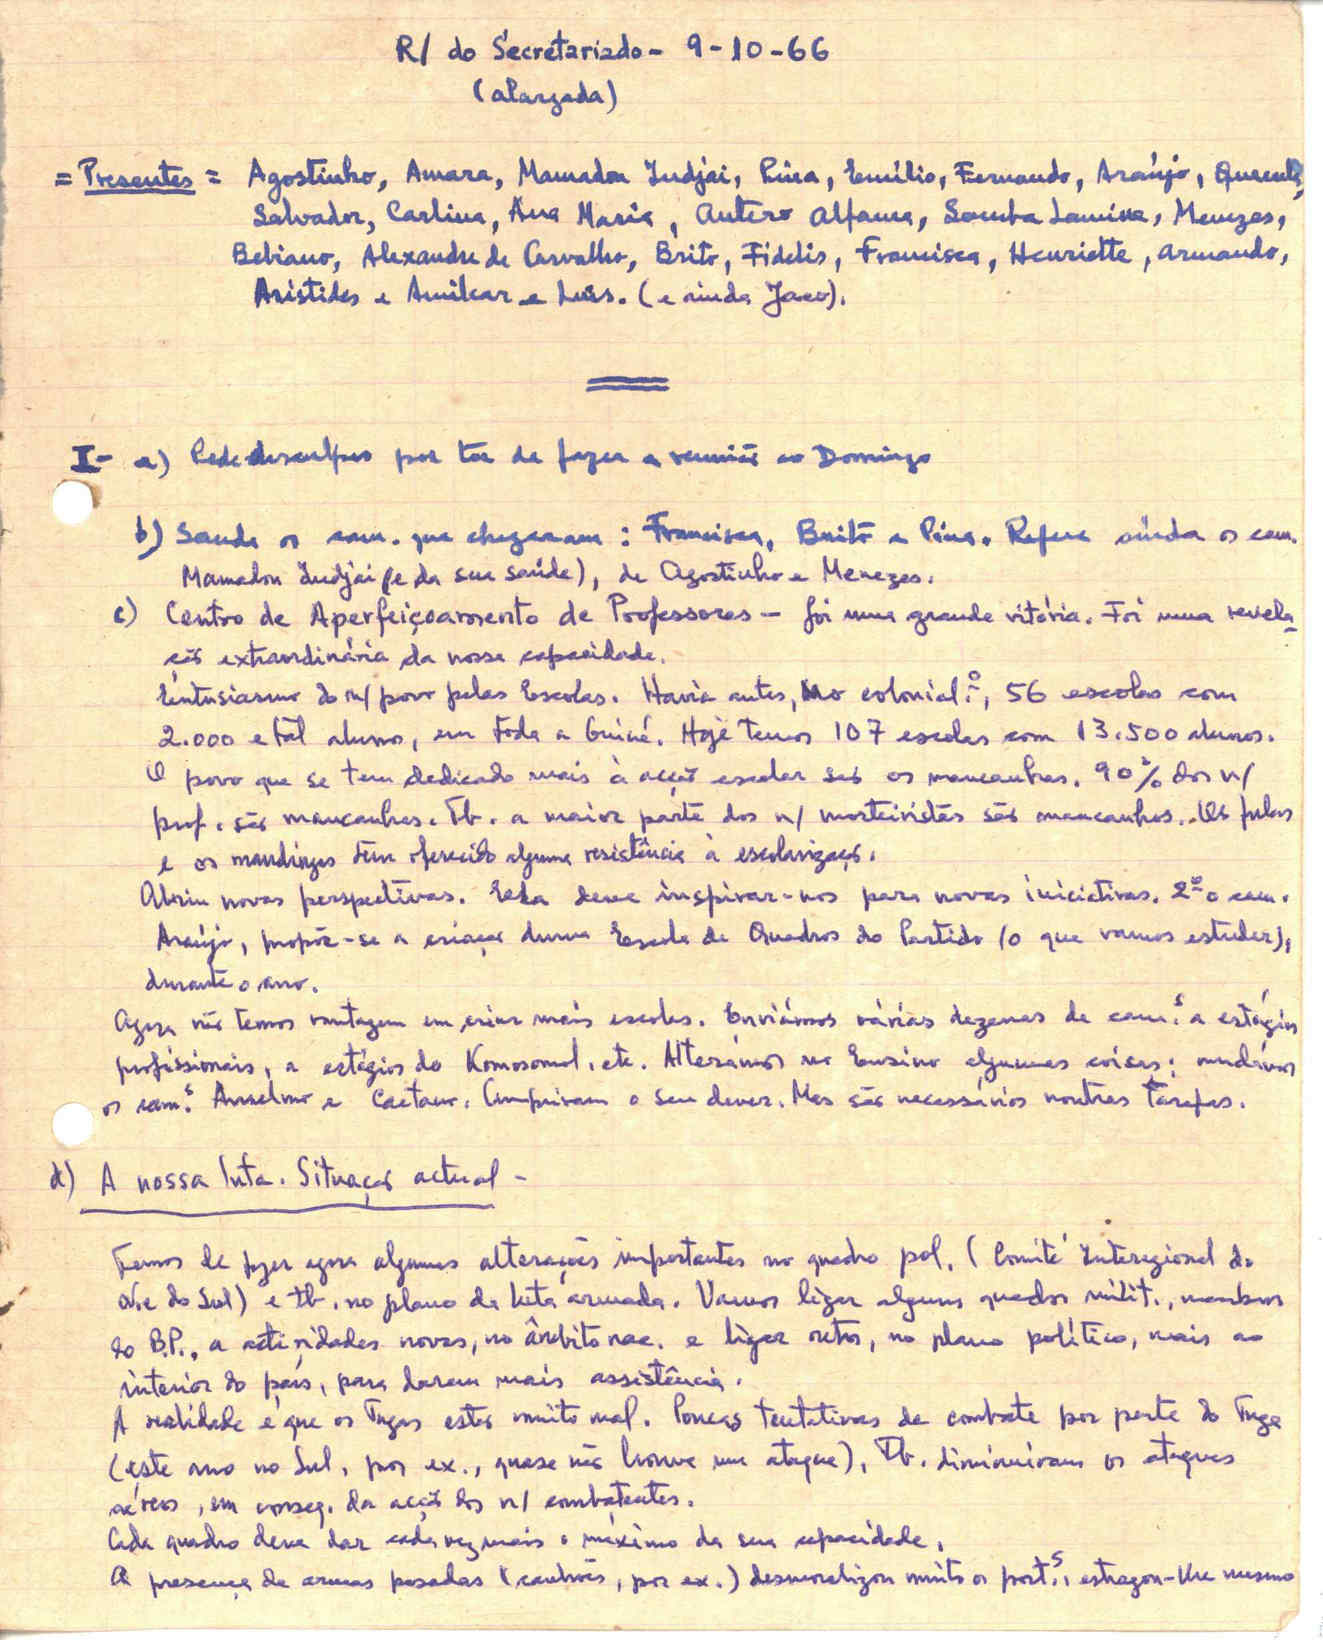 R/ do Secretariado - 9-10-66
(alargada)
= Presentes = Agostinho, Amara, Mamadou Indjai, Pina, Emílio, Fernando, Araújo, Quecuta,
Salvador, Carlina, Ana Maria, Antero Alfama, Samba Lamine, Menezes,
Bebiano, Alexandre de Carvalho, Brito, Fidelis, Francisca, Henriette, Armando,
Aristides e Amílcar e Luís. (e ainda Jaco).
I- a) Pede desculpas por ter de fazer a reunião ao Domingo
b) Saúda os cam. que chegaram: Francisca, Brito e Pina. Refere ainda os cam.
Mamadou Indjai (e da sua saúde), de Agostinho e Menezes.
c) Centro de Aperfeiçoamento de Professores - foi uma grande vitória. Foi uma revela-
ção extraordinária da nossa capacidade.
Entusiasmo do n/ povo pelas Escolas. Havia antes, no colonial.º, 56 escolas com
2.000 e tal alunos, em toda a Guiné. Hoje temos 107 escolas com 13.500 alunos.
O povo que se tem dedicado mais à acção escolar são os mancanhas. 90% dos n/
prof. são mancanhas. Tb. a maior parte dos n/ morteiristas são mancanhas. Os fulas
e os mandingas têm oferecido alguma resistência à escolarização.
Abriu novas perspectivas. Esta deve inspirar-nos para novas iniciativas. 2º o cam.
Araújo, propõe-se a criação duma Escola de Quadros do Partido (o que vamos estudar),
durante o ano.
Agora não temos vantagem em criar mais escolas. Enviámos várias dezenas de cam.s a estágios
profissionais, a estágios do Komosomol, etc. Alterámos no Ensino algumas coisas: mudámos
os cam.s Anselmo e Caetano. Cumpriram o seu dever. Mas são necessários noutras tarefas.
d) A nossa luta. Situação actual -
Temos de fazer agora algumas alterações importantes no quadro pol. (Comité Interegional do
N. e do Sul) e tb. no plano da luta armada. Vamos ligar alguns quadros milit., membros
do B.P., a actividades novas, no âmbito nac. e ligar outros, no plano político, mais ao
interior do país, para darem mais assistência.
A realidade é que os Tugas estão muito mal. Poucas tentativas de combate por parte do Tuga
(este ano no Sul, por ex., quase não houve um ataque), Tb. diminuiram os ataques
aéreos, em conseq. da acção dos n/ combatentes.
Cada quadro deve dar cada vez mais o máximo da sua capacidade.
A presença de armas pesadas (canhões, por ex.) desmoralizou muito os port.s, estragou-lhe mesmo